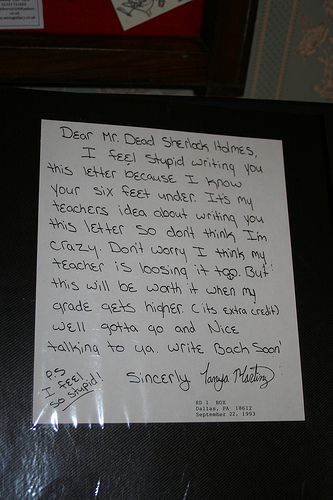 Dear Mr. Dead Sherlock Holmes,
I feel stupid writing you
this letter because I know
your six feet under. It's my
teachers idea about writing you
this letter so don't think I'm
crazy. Don't worry I think my
teacher is loosing it too. But
this will be worth it when my
grade gets higher. (its extra credit)
well gotta go and Nice
talking to ya. write Back soon!
Sincerly Tanya Martinz
P.S
I feel
so stupid!
RD 1 BOX
Dallas, PA 18612
September 22, 1993